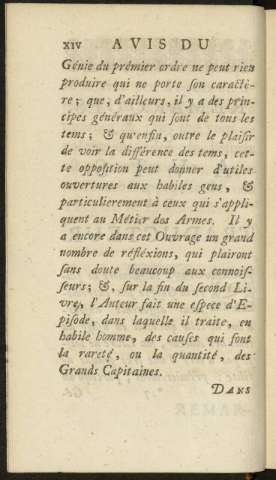 XIV AVIS DU
Génie du prémier ordre ne peut rien
produire qui ne porte son caractè-
re; que, d'ailleurs, il y a des prin-
cipes généraux qui sont de tous les
tems; & qu'enfin, outre le plaisir
de voir la différence des tems, cet-
te opposition peut donner d'utiles
ouvertures aux habiles gens, &
particulierement à ceux qui s'appli-
quent au Métier des Armes. Il y
a encore dans cet Ouvrage un grand
nombre de réfléxions, qui plairont
sans doute beaucoup aux connois-
seurs; &, sur la fin du second Li-
vre, l'Auteur fait une espece d'E-
pisode, dans laquelle il traite, en
habile homme, des causes qui font
la rareté, ou la quantité, des
Grands Capitaines.
DANS